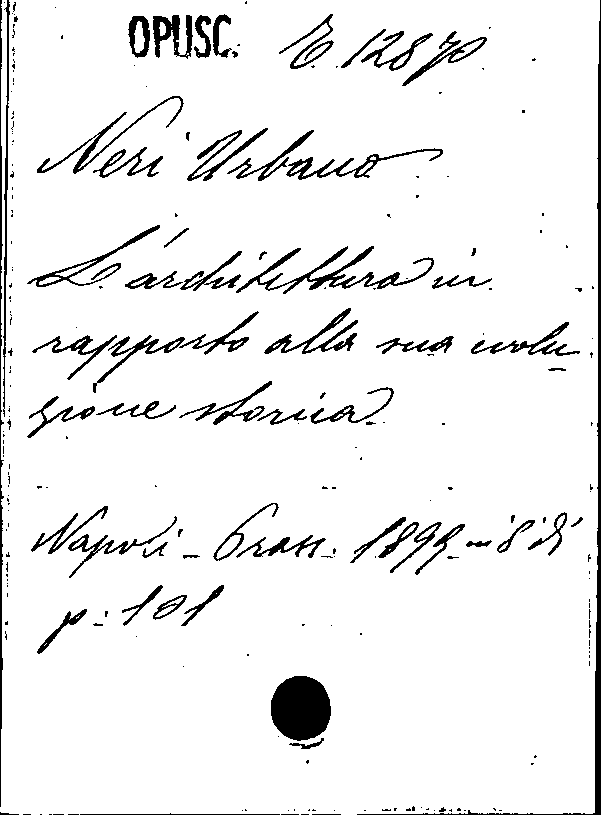 OPUSC. E. 1287
Neri Urbano
L'architettura in
rapporto alla sua evolu-
zione storica.
Napoli - 1899 - in 8° di
p. 101